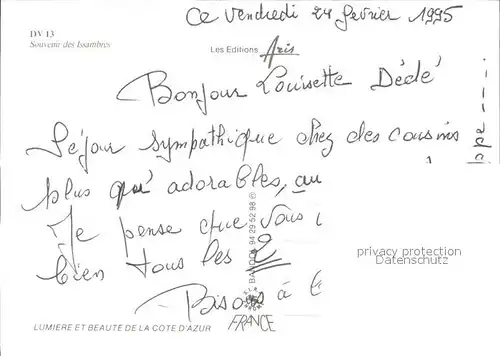 Ce vendredi 24 fevrier 1995
DV 13
Souvenir des Issambres
Les Editions Aris
Bonjour Louisette Dédé
Séjour sympathique chez des cousins
plus qu'adorables, au
Je pense que vous
bien tous les 2
Bisous à
94 29 52 98 ©
privacy protection
Datenschutz
LUMIERE ET BEAUTÉ DE LA COTE D'AZUR
FRANCE